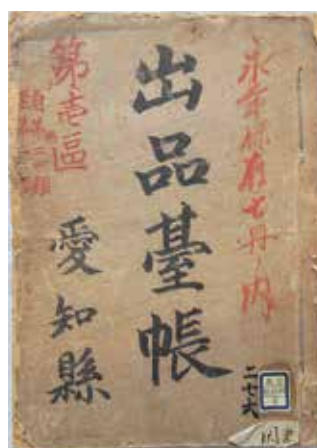 永年保存七冊ノ内
出品臺帳
第壱區
愛知縣
二七六